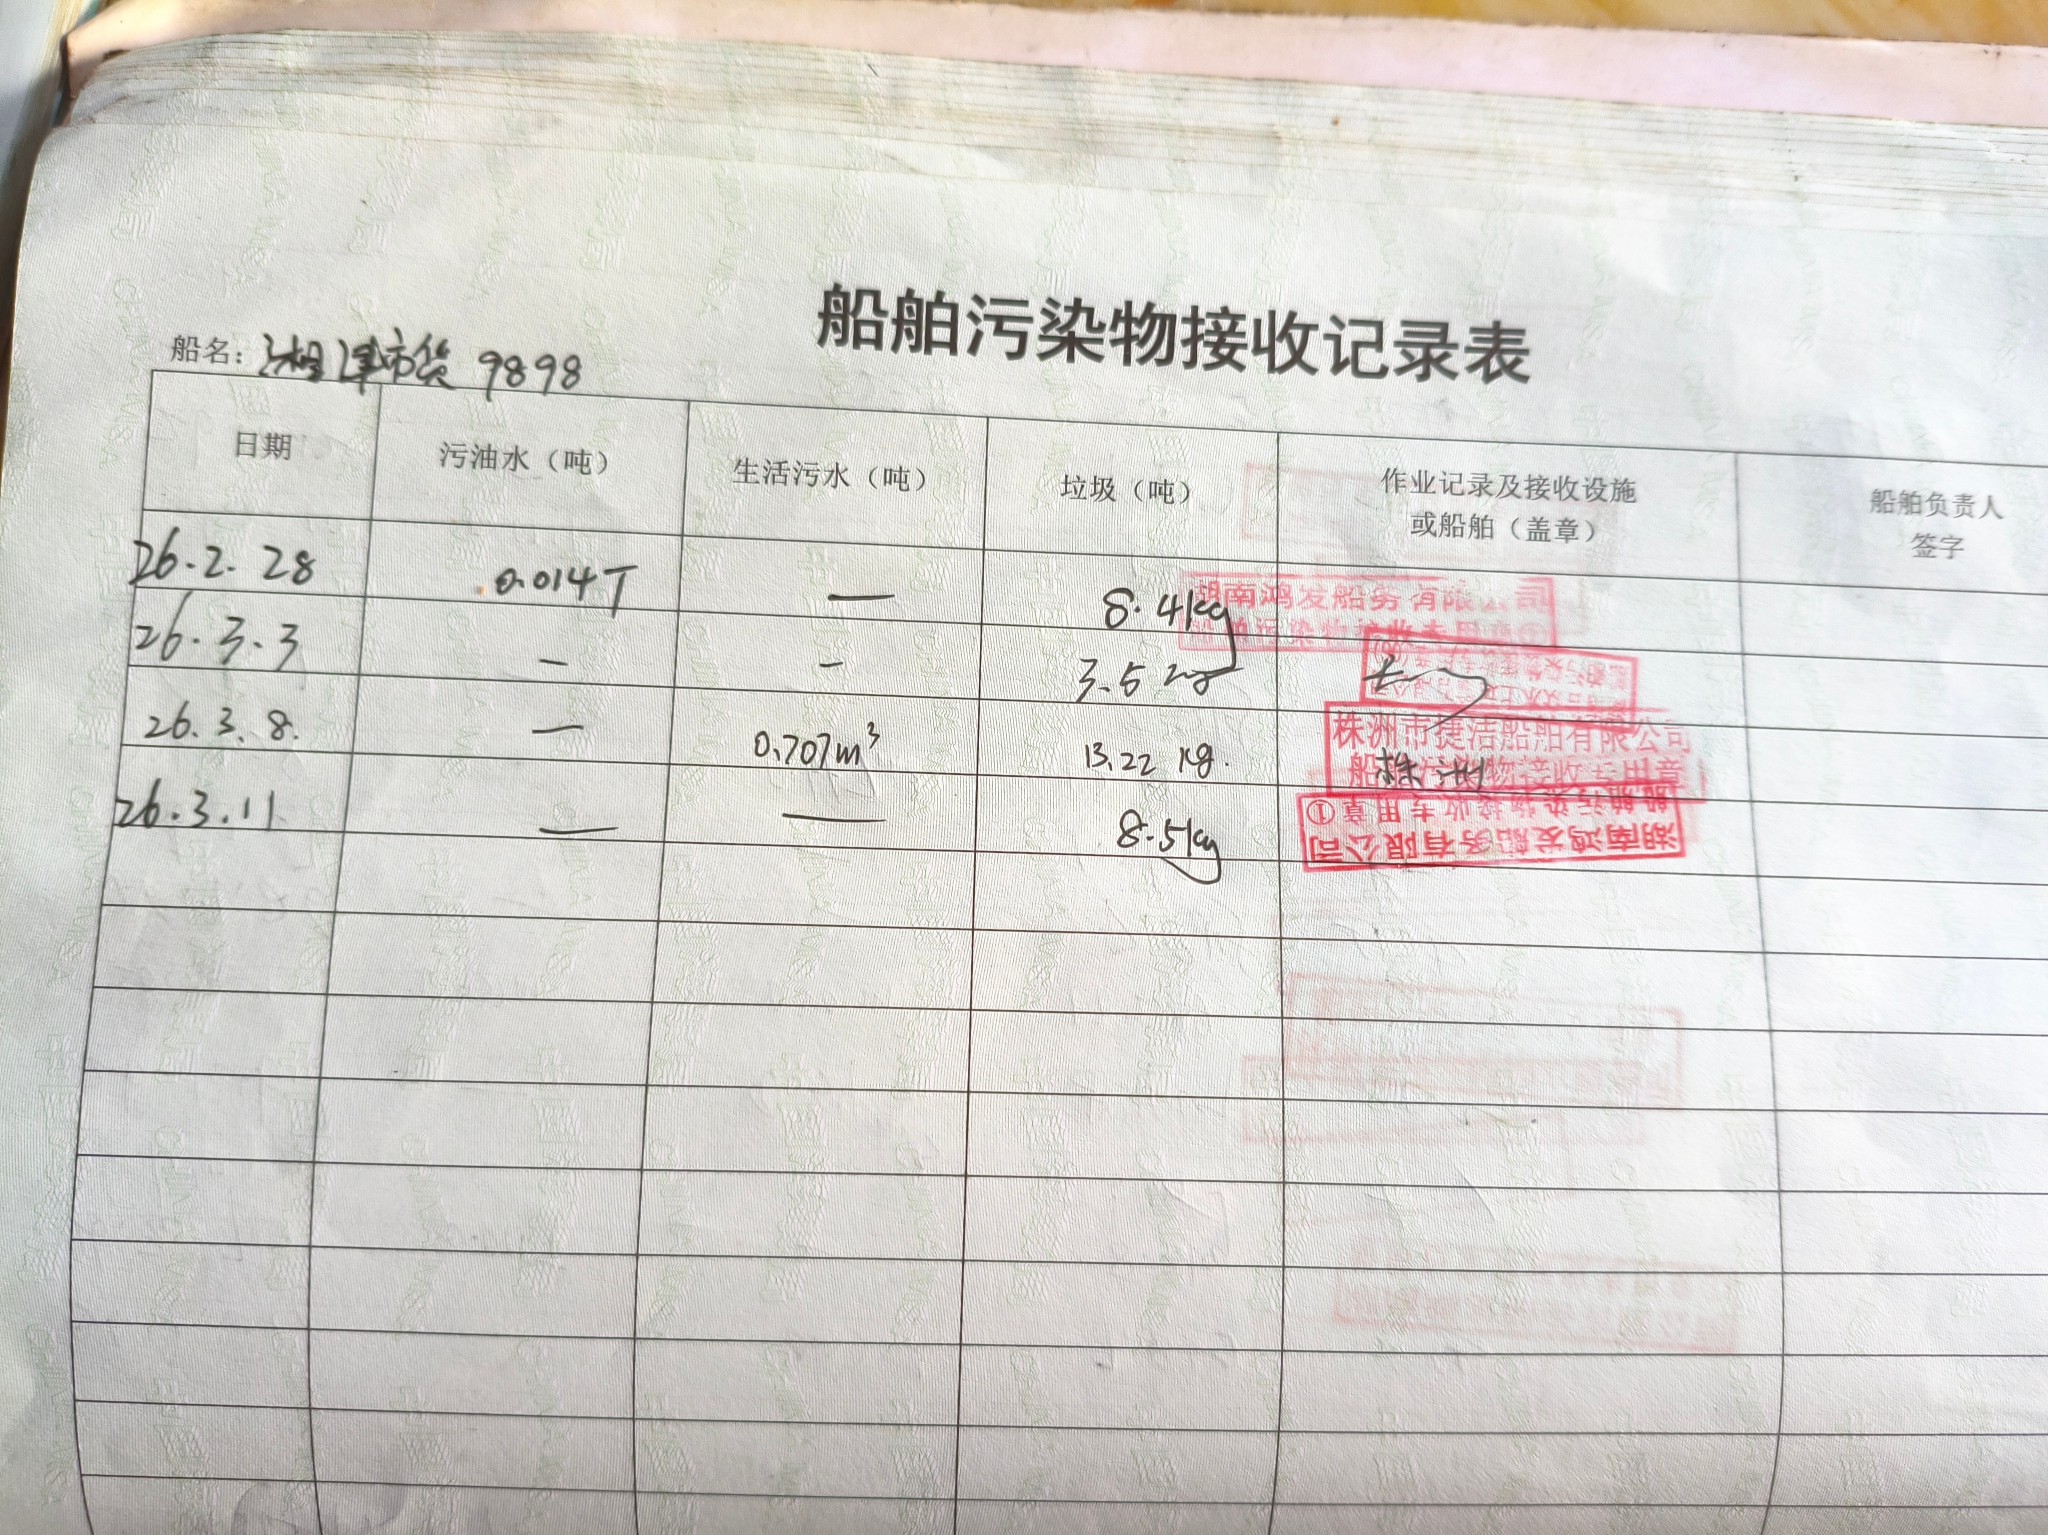 船舶污染物接收记录表
船名：湘津市货 9898
日期 污油水（吨） 生活污水（吨） 垃圾（吨） 作业记录及接收设施或船舶（盖章） 船舶负责人签字
26.2.28 0.014T — 8.4kg
湖南鸿发船务有限公司
船舶污染物接收专用章①
26.3.3 — — 3.5kg
26.3.8. — 0.707m³ 13.22 kg. 株洲
株洲市捷洁船舶有限公司
船舶污染物接收专用章
26.3.11 — — 8.5kg
湖南鸿发船务有限公司
船舶污染物接收专用章①